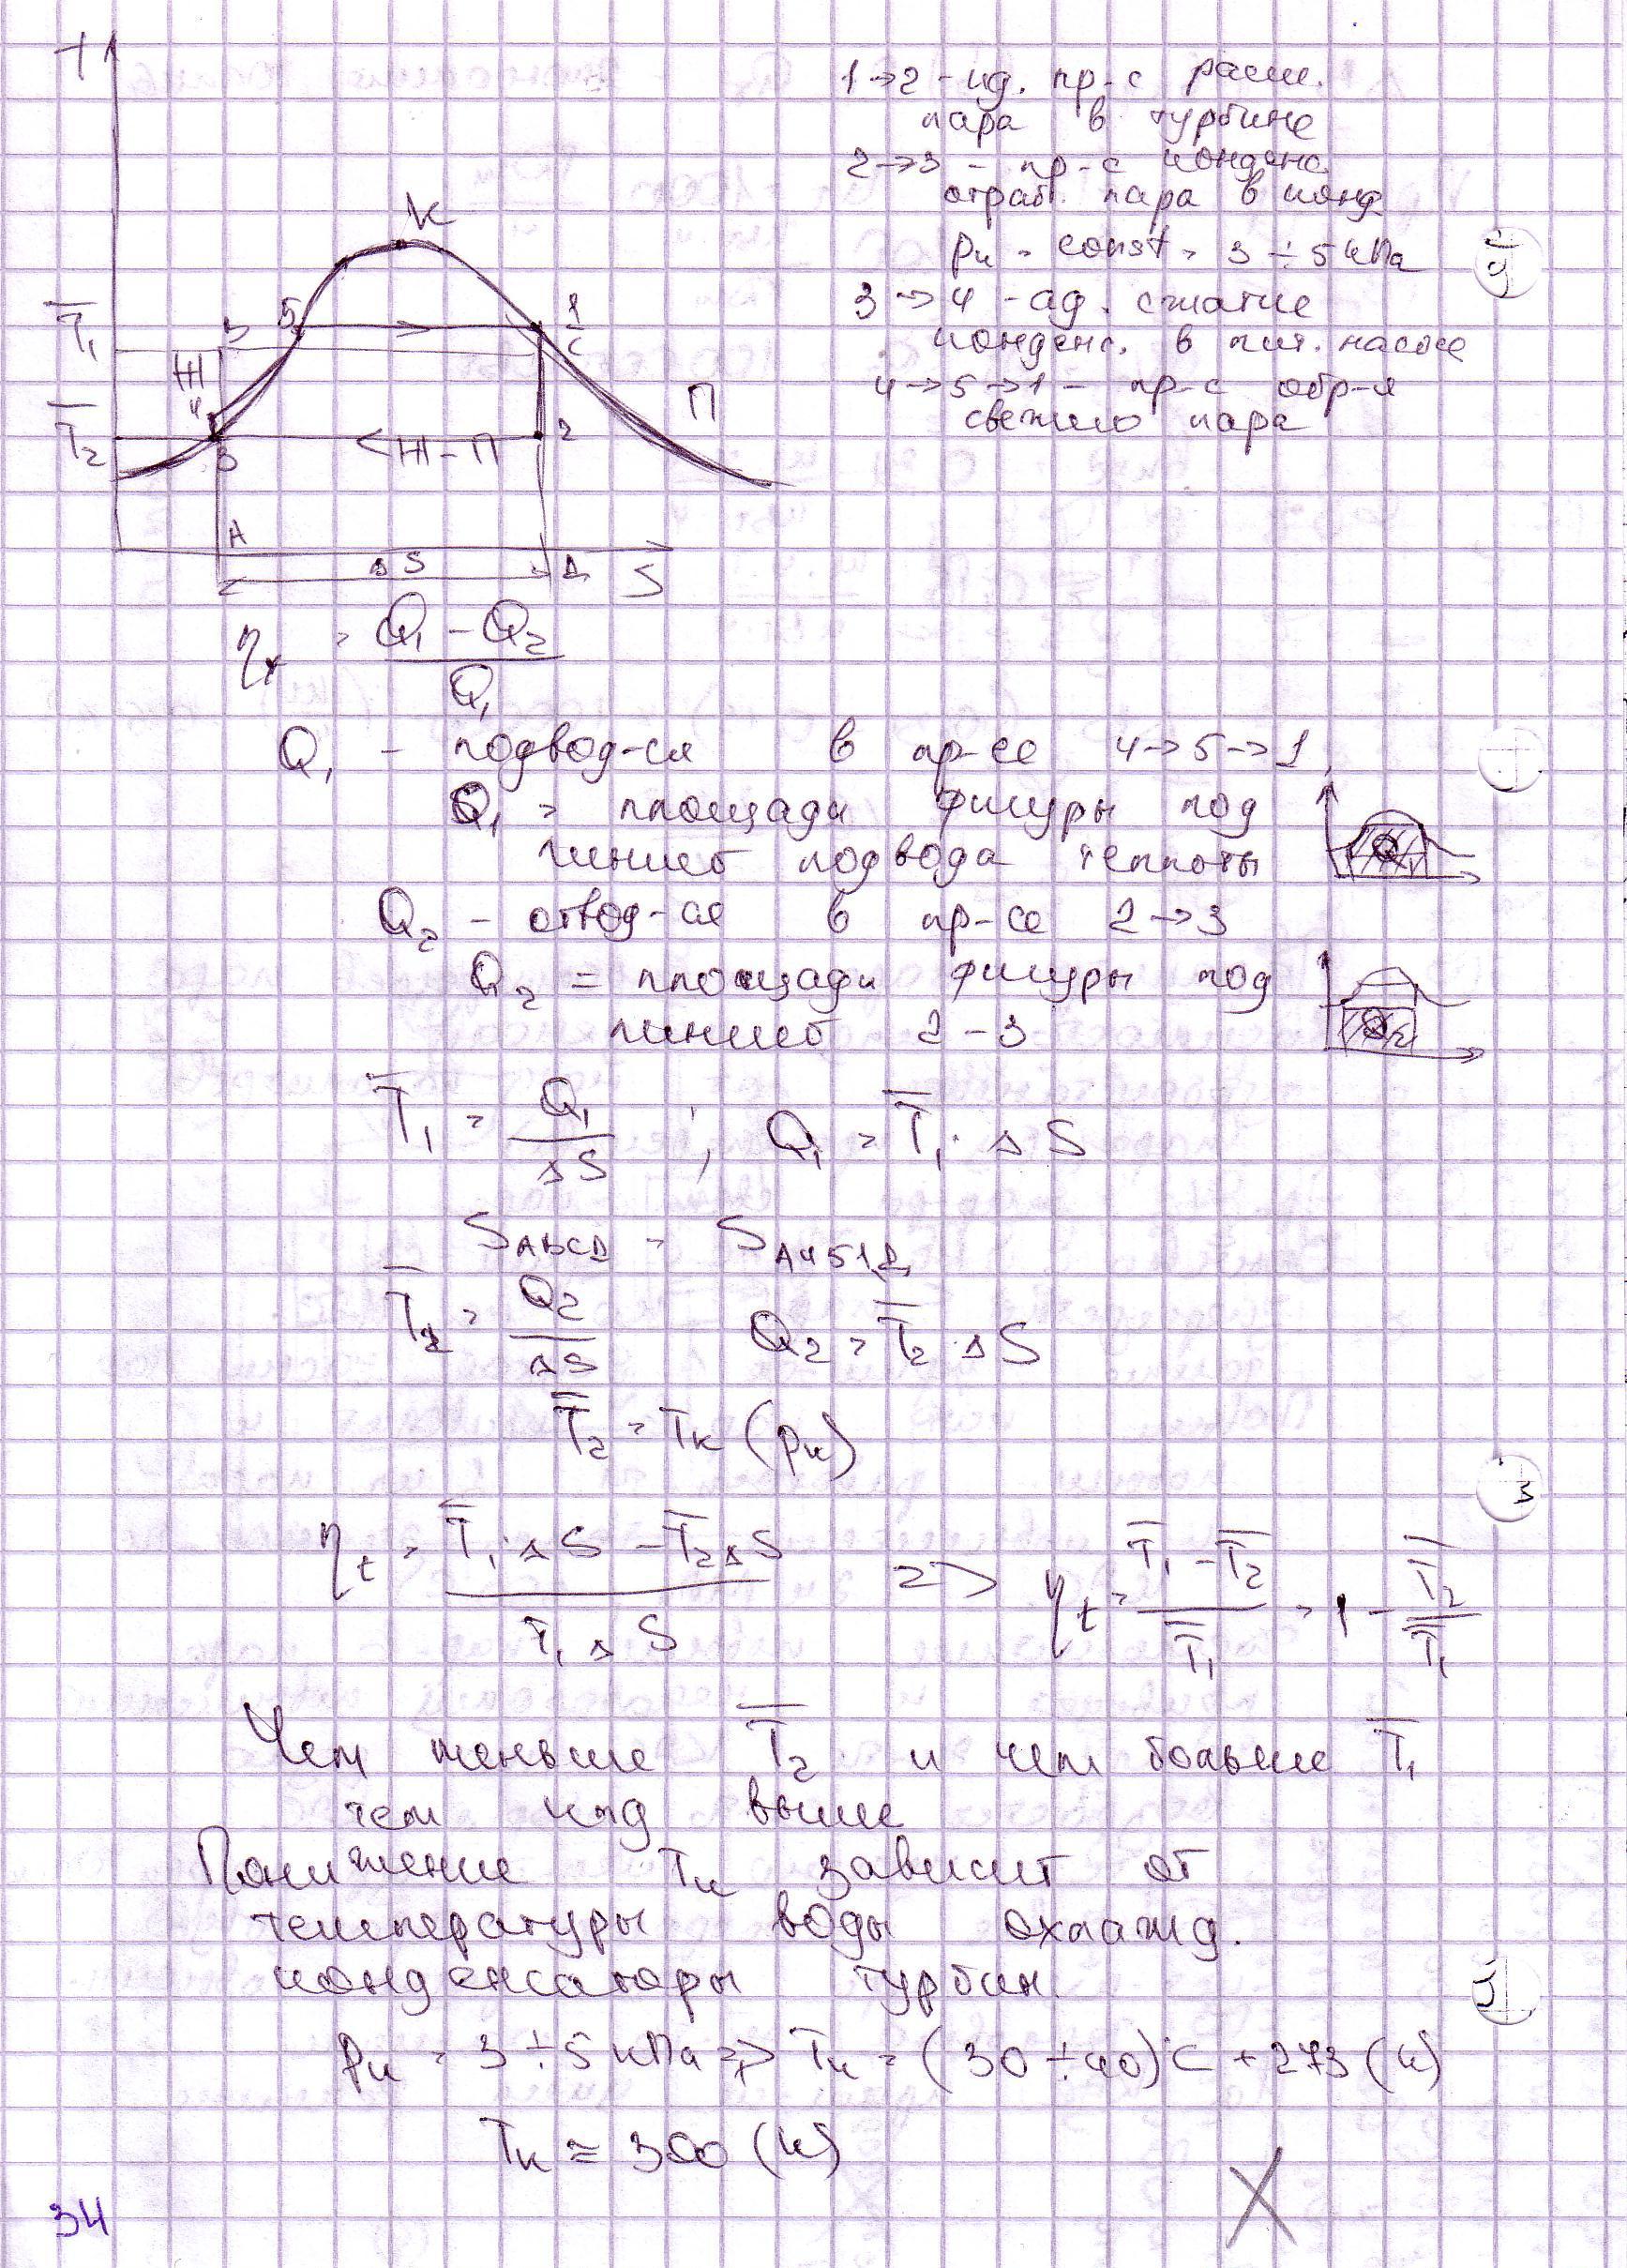 T
K
T̅₁
B 5 1
C
Ж
4
П
T̅₂
Ж-П 2
3
A
ΔS Д S
1→2 - ид. пр-с расш.
пара в турбине
2→3 - пр-с конденс.
отраб. пара в конд.
pк = const = 3÷5 кПа
3→4 - ад. сжатие
конденс. в пит. насосе
4→5→1 - пр-с обр-я
свежего пара
ηt = (Q₁ - Q₂) / Q₁
Q₁ - подвод-ся в пр-се 4→5→1
Q₁ = площади фигуры под
линией подвода теплоты
Q₁
Q₂ - отвод-ся в пр-се 2→3
Q₂ = площади фигуры под
линией 2-3
Q₂
T̅₁ = Q₁ / ΔS ; Q₁ = T̅₁ · ΔS
S_ABCД = S_A451Д
T̅₂ = Q₂ / ΔS Q₂ = T̅₂ · ΔS
T̅₂ = Tк (pк)
ηt = (T̅₁ · ΔS - T̅₂ΔS) / T̅₁ΔS => ηt = (T̅₁ - T̅₂) / T̅₁ = 1 - T̅₂ / T̅₁
Чем меньше T̅₂ и чем больше T̅₁
тем кпд выше
Понижение Tк зависит от
температуры воды охлажд.
конденсаторы турбин.
pк = 3÷5 кПа => Tк = (30÷40)°C + 273 (К)
Tк ≈ 300 (К)
34